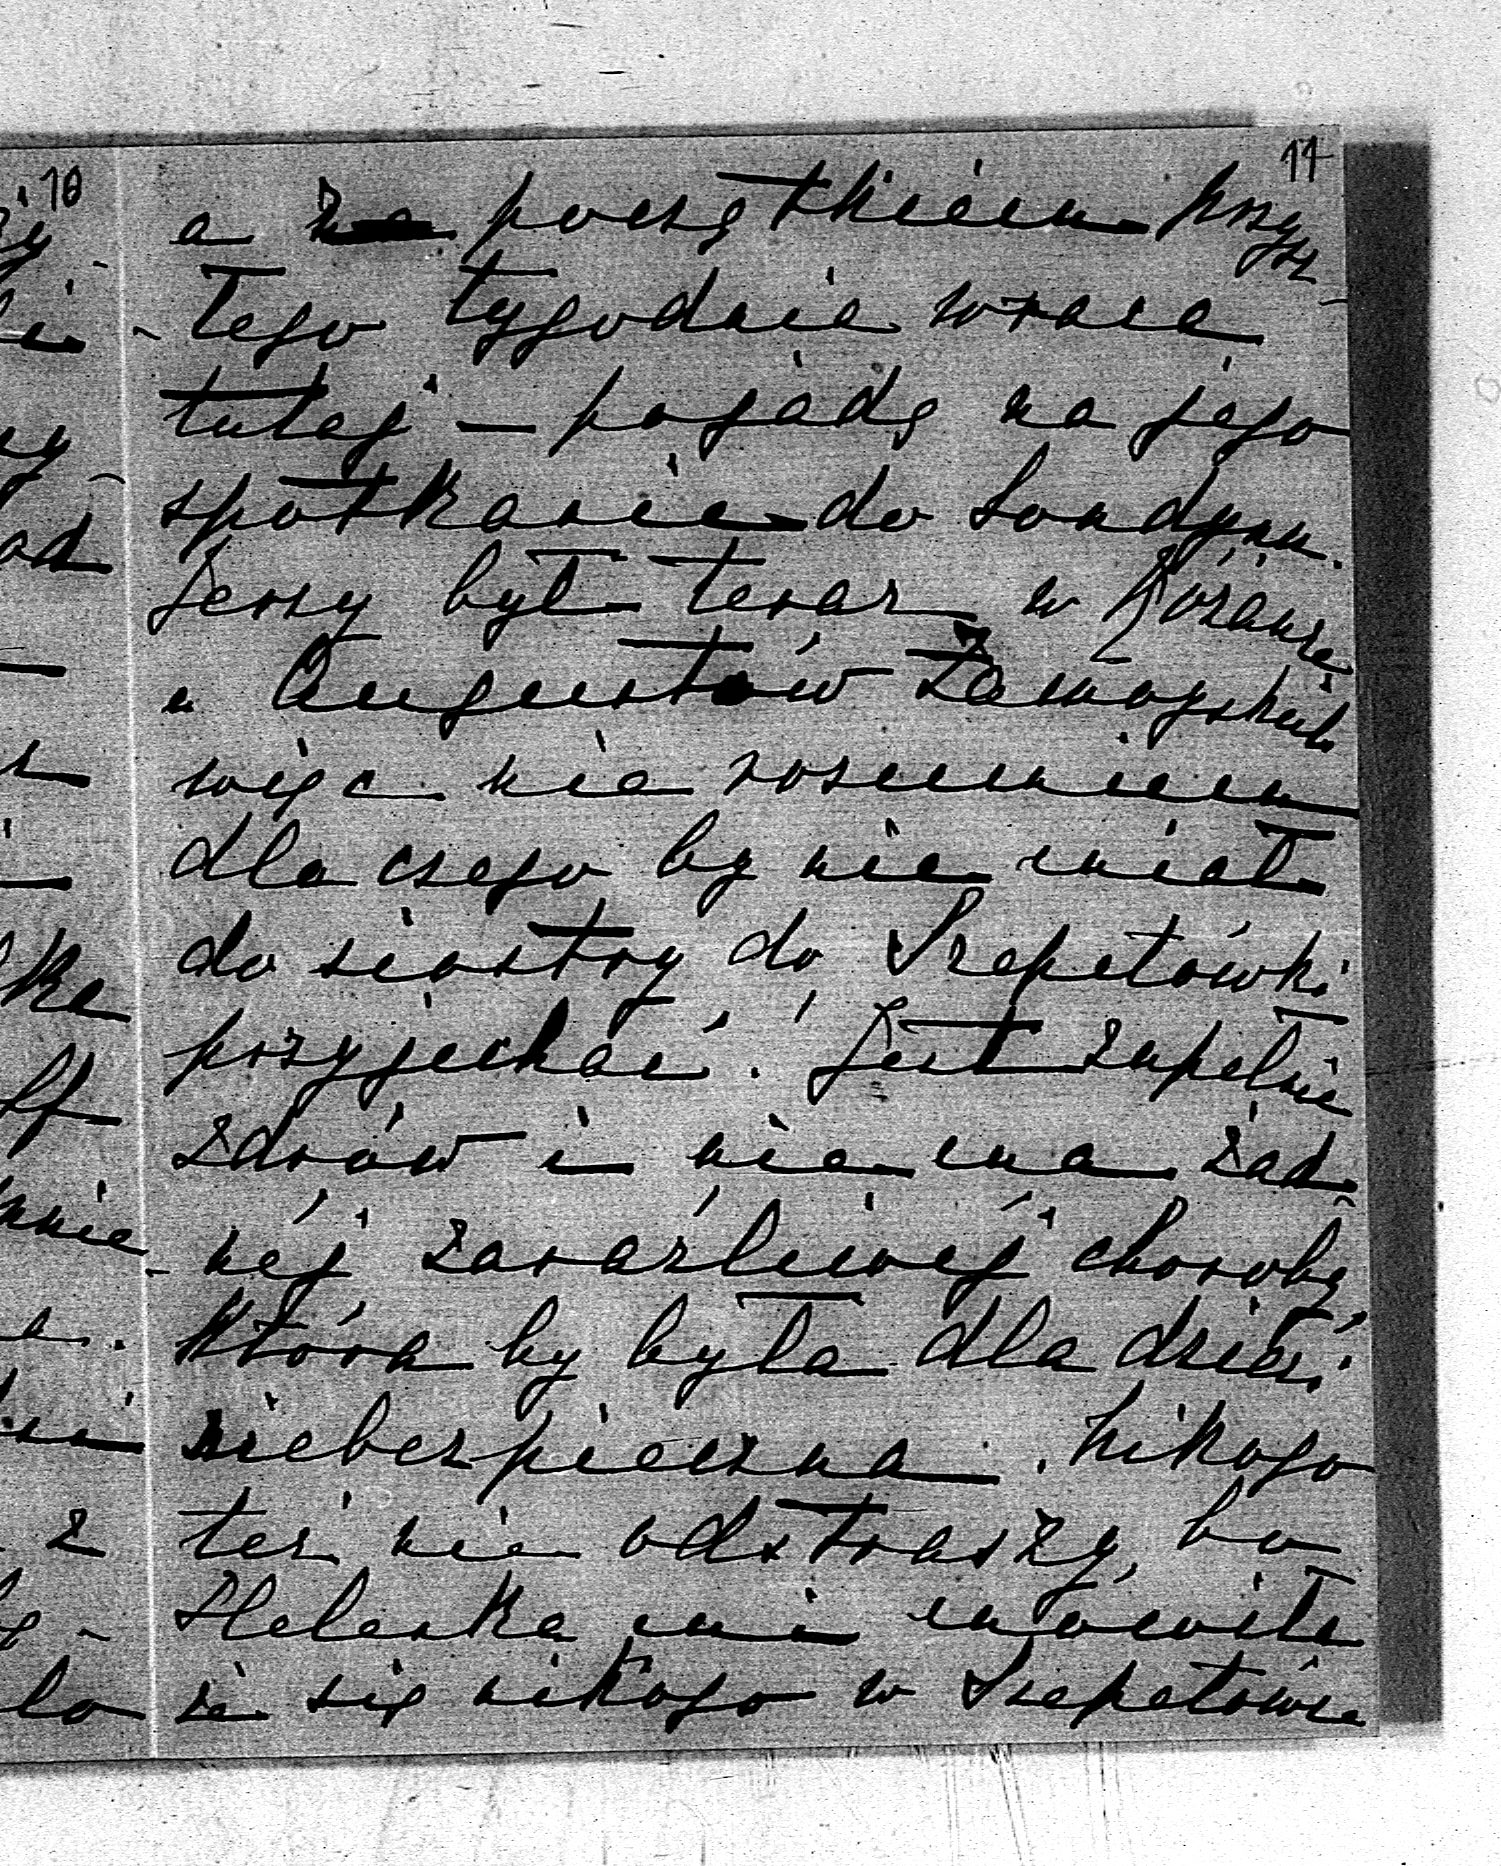 10
11
a z początkiem przysz-
-łego tygodnia wraca
tutaj — pojadę na jego
spotkanie do Londynu.
Jerzy był teraz w
u Augustów Zamoyskich
więc nie rozumiem
dla czego by nie miał
do siostry do Szepetówki
przyjechać! Jest zupełnie
zdrów i nie ma żad-
-néj zaraźliwéj choroby,
która by była dla dzieci
niebezpieczna. Nikogo
też nie odstraszy, bo
Helenka mi mówiła
że się nikogo w Szepetówce